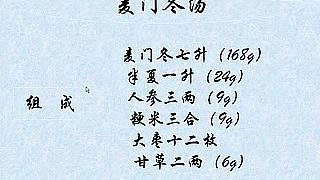 麦门冬汤
麦门冬七升 (168g)
半夏一升 (24g)
人参三两 (9g)
组 成
粳米三合 (9g)
大枣十二枚
甘草二两 (6g)